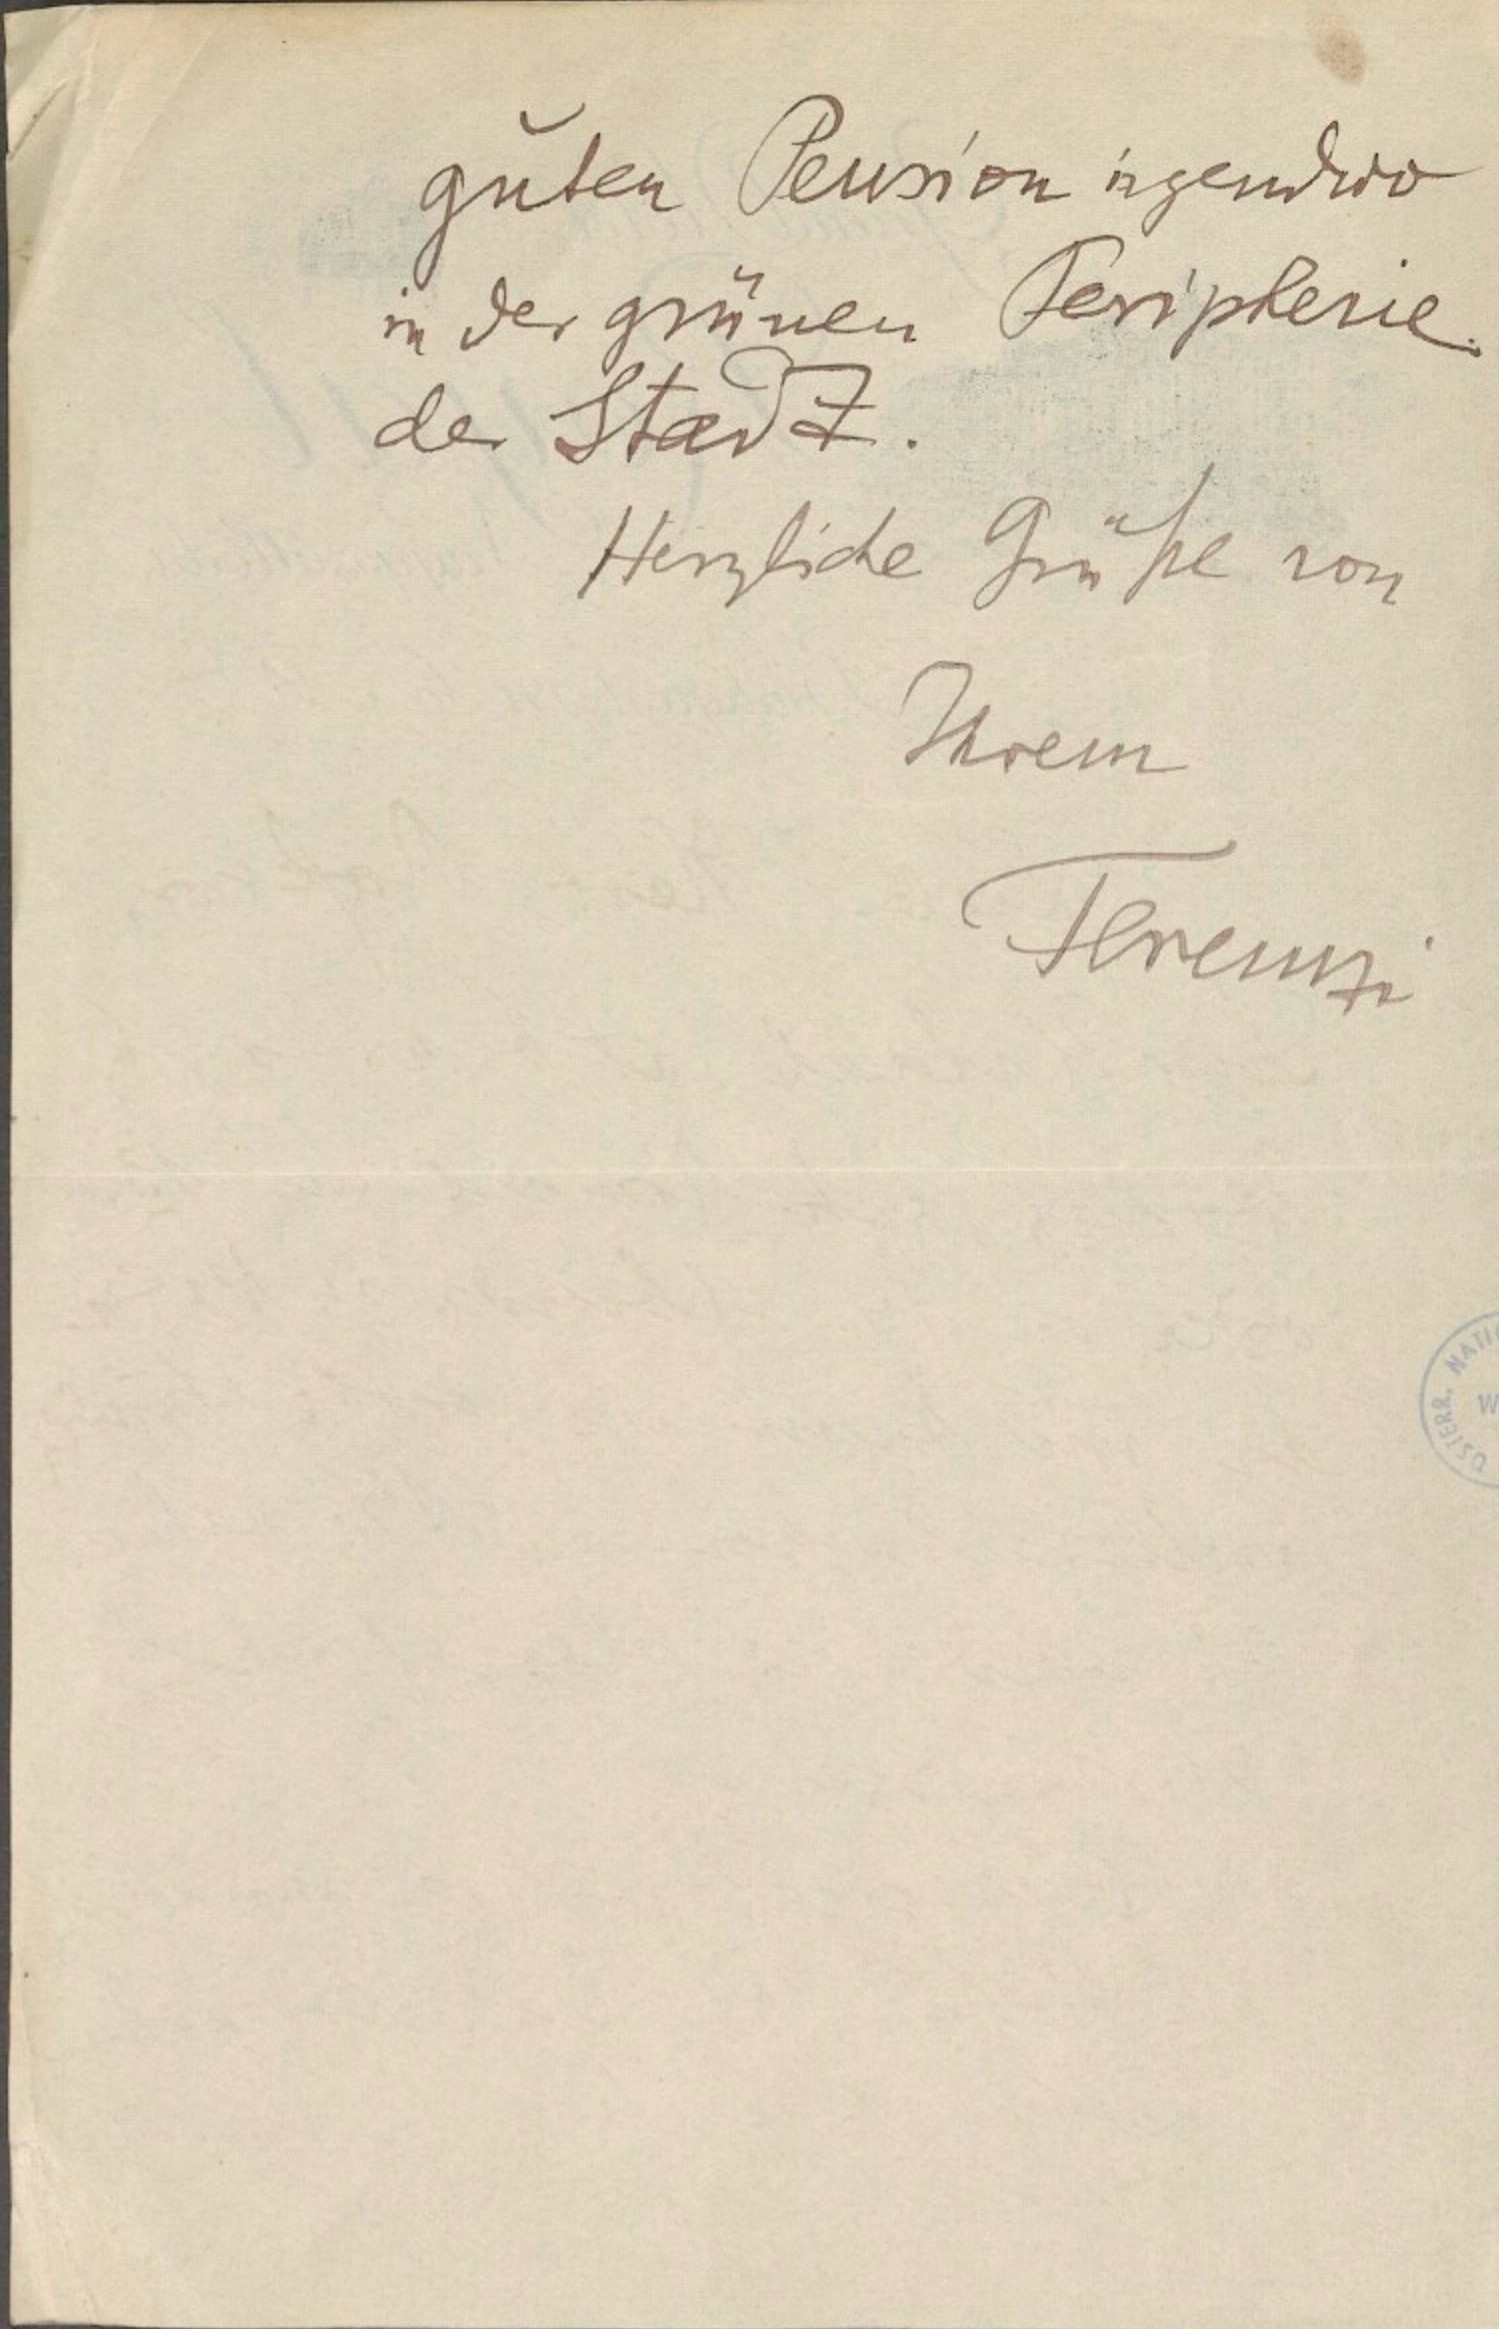 guten Pension irgendwo
in der grünen Peripherie
der Stadt.
Herzliche Grüße von
Ihrem
Ferenczi
ÖSTERR. NATI
W